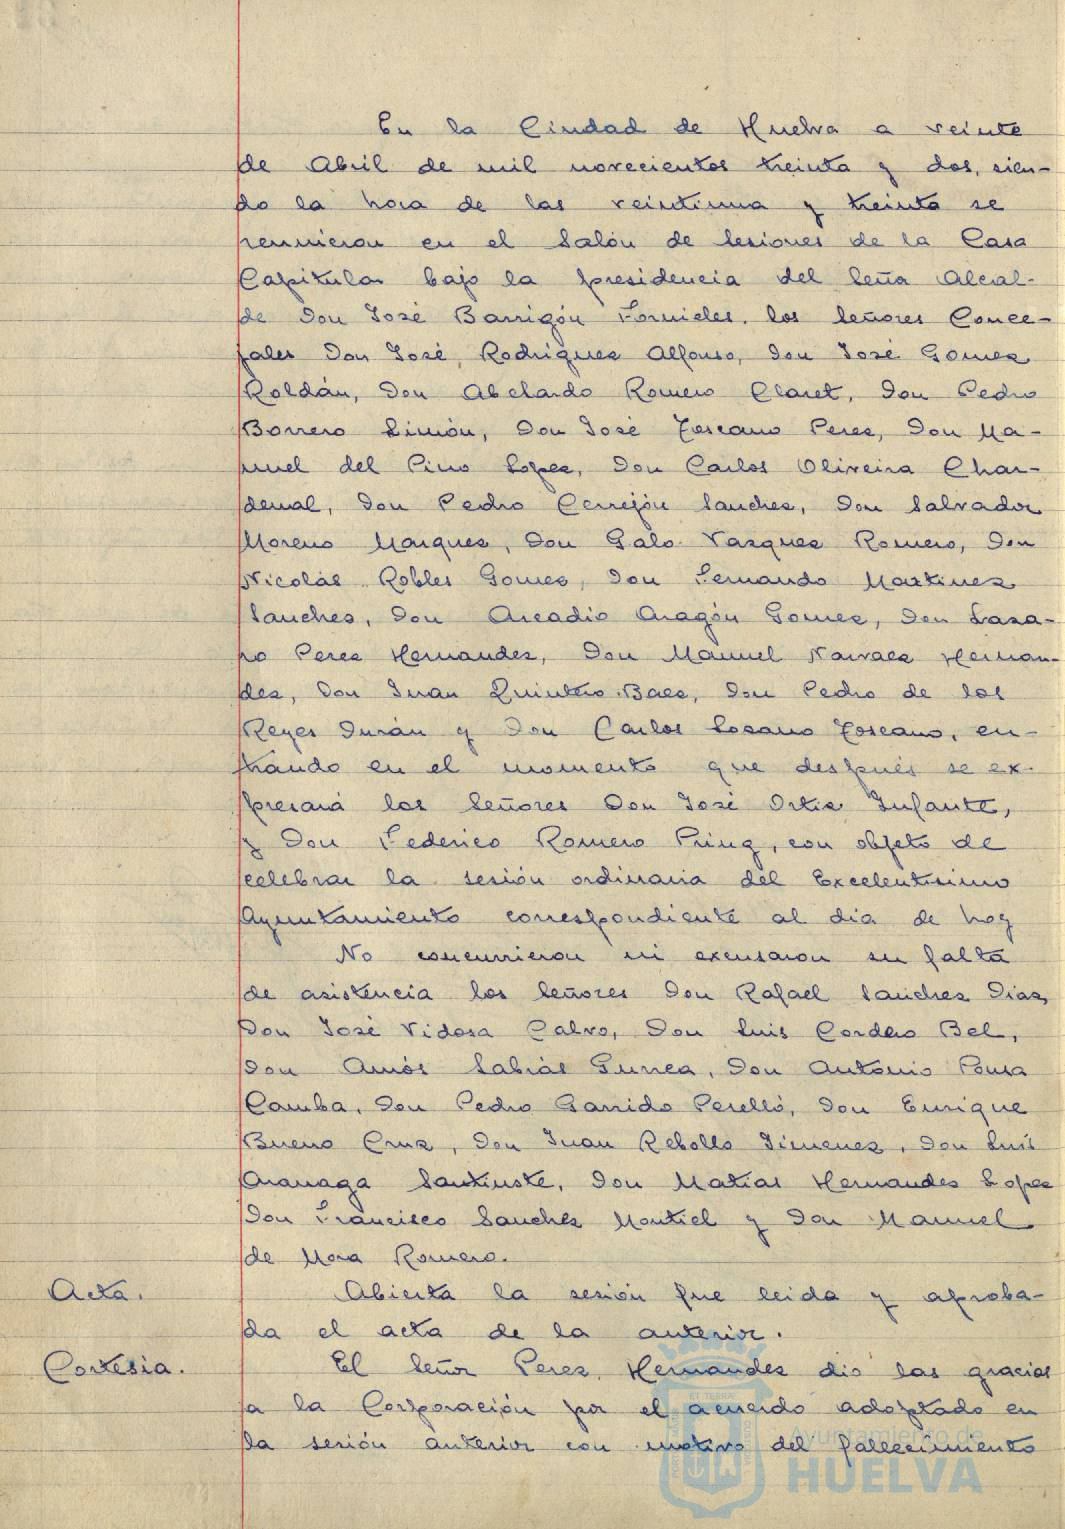 En la Ciudad de Huelva a veinte
de Abril de mil novecientos treinta y dos, sien-
do la hora de las veintiuna y treinta se
reunieron en el Salón de Sesiones de la Casa
Capitular bajo la presidencia del Señor Alcal-
de Don José Barrigón Fornieles, los Señores Conce-
jales Don José Rodriguez Alfonso, Don José Gomez
Roldán, Don Abelardo Romero Claret, Don Pedro
Borrero Limón, Don José Toscano Perez, Don Ma-
nuel del Pino Lopez, Don Carlos Oliveira Char-
denal, Don Pedro Cerrejón Sanchez, Don Salvador
Moreno Marquez, Don Galo Vazquez Romero, Don
Nicolás Robles Gomez, Don Fernando Martinez
Sanchez, Don Arcadio Aragón Gomez, Don Laza-
ro Perez Hernandez, Don Manuel Narvaez Hernan-
dez, Don Juan Quintero Baez, Don Pedro de los
Reyes Durán y Don Carlos Lozano Toscano, en-
trando en el momento que después se ex-
presará los Señores Don José Ortiz Infante,
y Don Federico Romero Pring, con objeto de
celebrar la sesión ordinaria del Excelentisimo
Ayuntamiento correspondiente al dia de hoy
No concurrieron ni excusaron su falta
de asistencia los Señores Don Rafael Sanchez Diaz,
Don José Vidosa Calvo, Don Luis Cordero Bel,
Don Amós Sabrás Gurrea, Don Antonio Pousa
Camba, Don Pedro Garrido Perelló, Don Enrique
Bueno Cruz, Don Juan Rebollo Jimenez, Don Luis
Aranaga Santiuste, Don Matias Hernandez Lopez
Don Francisco Sanchez Montiel y Don Manuel
de Mora Romero.
Acta. Abierta la sesión fue leida y aproba-
da el acta de la anterior.
Cortesia. El Señor Perez Hernandez dió las gracias
a la Corporación por el acuerdo adoptado en
la sesión anterior con motivo del fallecimiento
Ayuntamiento de
HUELVA